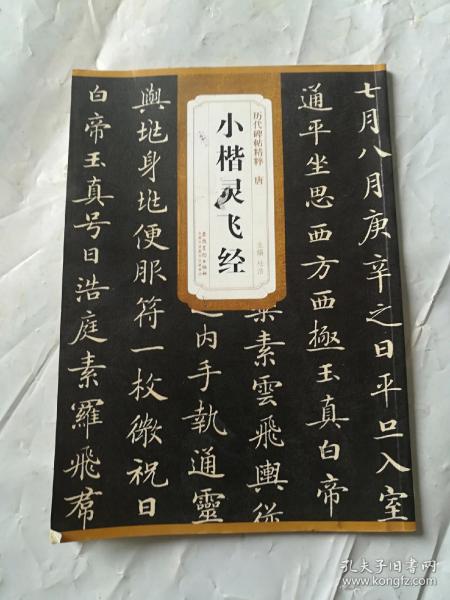 历代碑帖精粹 唐
小楷灵飞经
主编 杜浩
七月八月庚辛之日平旦入室
通平坐思西方西極玉真白帝
素雲飛輿從
之内手執通靈
與垗身垗便服符一枚微祝曰
白帝玉真号曰浩庭素羅飛帬
孔夫子旧书网
www.kongfz.com